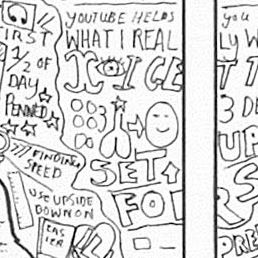 FIRST
1/2 OF
DAY
PENNED
FINDING
SPEED
USE UPSIDE
DOWN ON
EAS
IER
YOUTUBE HELPS
WHAT I REAL
SET
FO
you
LY W
T T
3 DE
UP